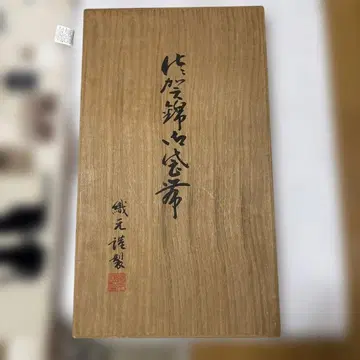 佐賀錦御袋帯
織元謹製